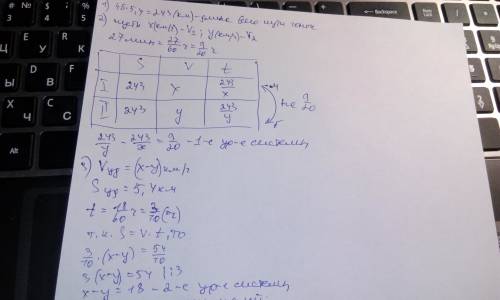 1) 45·5,4 = 243 (км) - длина всего пути гонок
2) Пусть x(км/ч) - V₁ ; y(км/ч) - V₂
27 мин = 27/60 ч = 9/20 ч
S V t
I 243 x 243/x
II 243 y 243/y
на 9/20
243/y - 243/x = 9/20 - 1-е ур-е системы
3) Vуд = (x-y) км/ч
Sуд = 5,4 км
t = 18/60 ч = 3/10 (ч)
т.к. S = V·t, то
3/10 · (x-y) = 54/10
3(x-y) = 54 |:3
x-y = 18 - 2-е ур-е системы